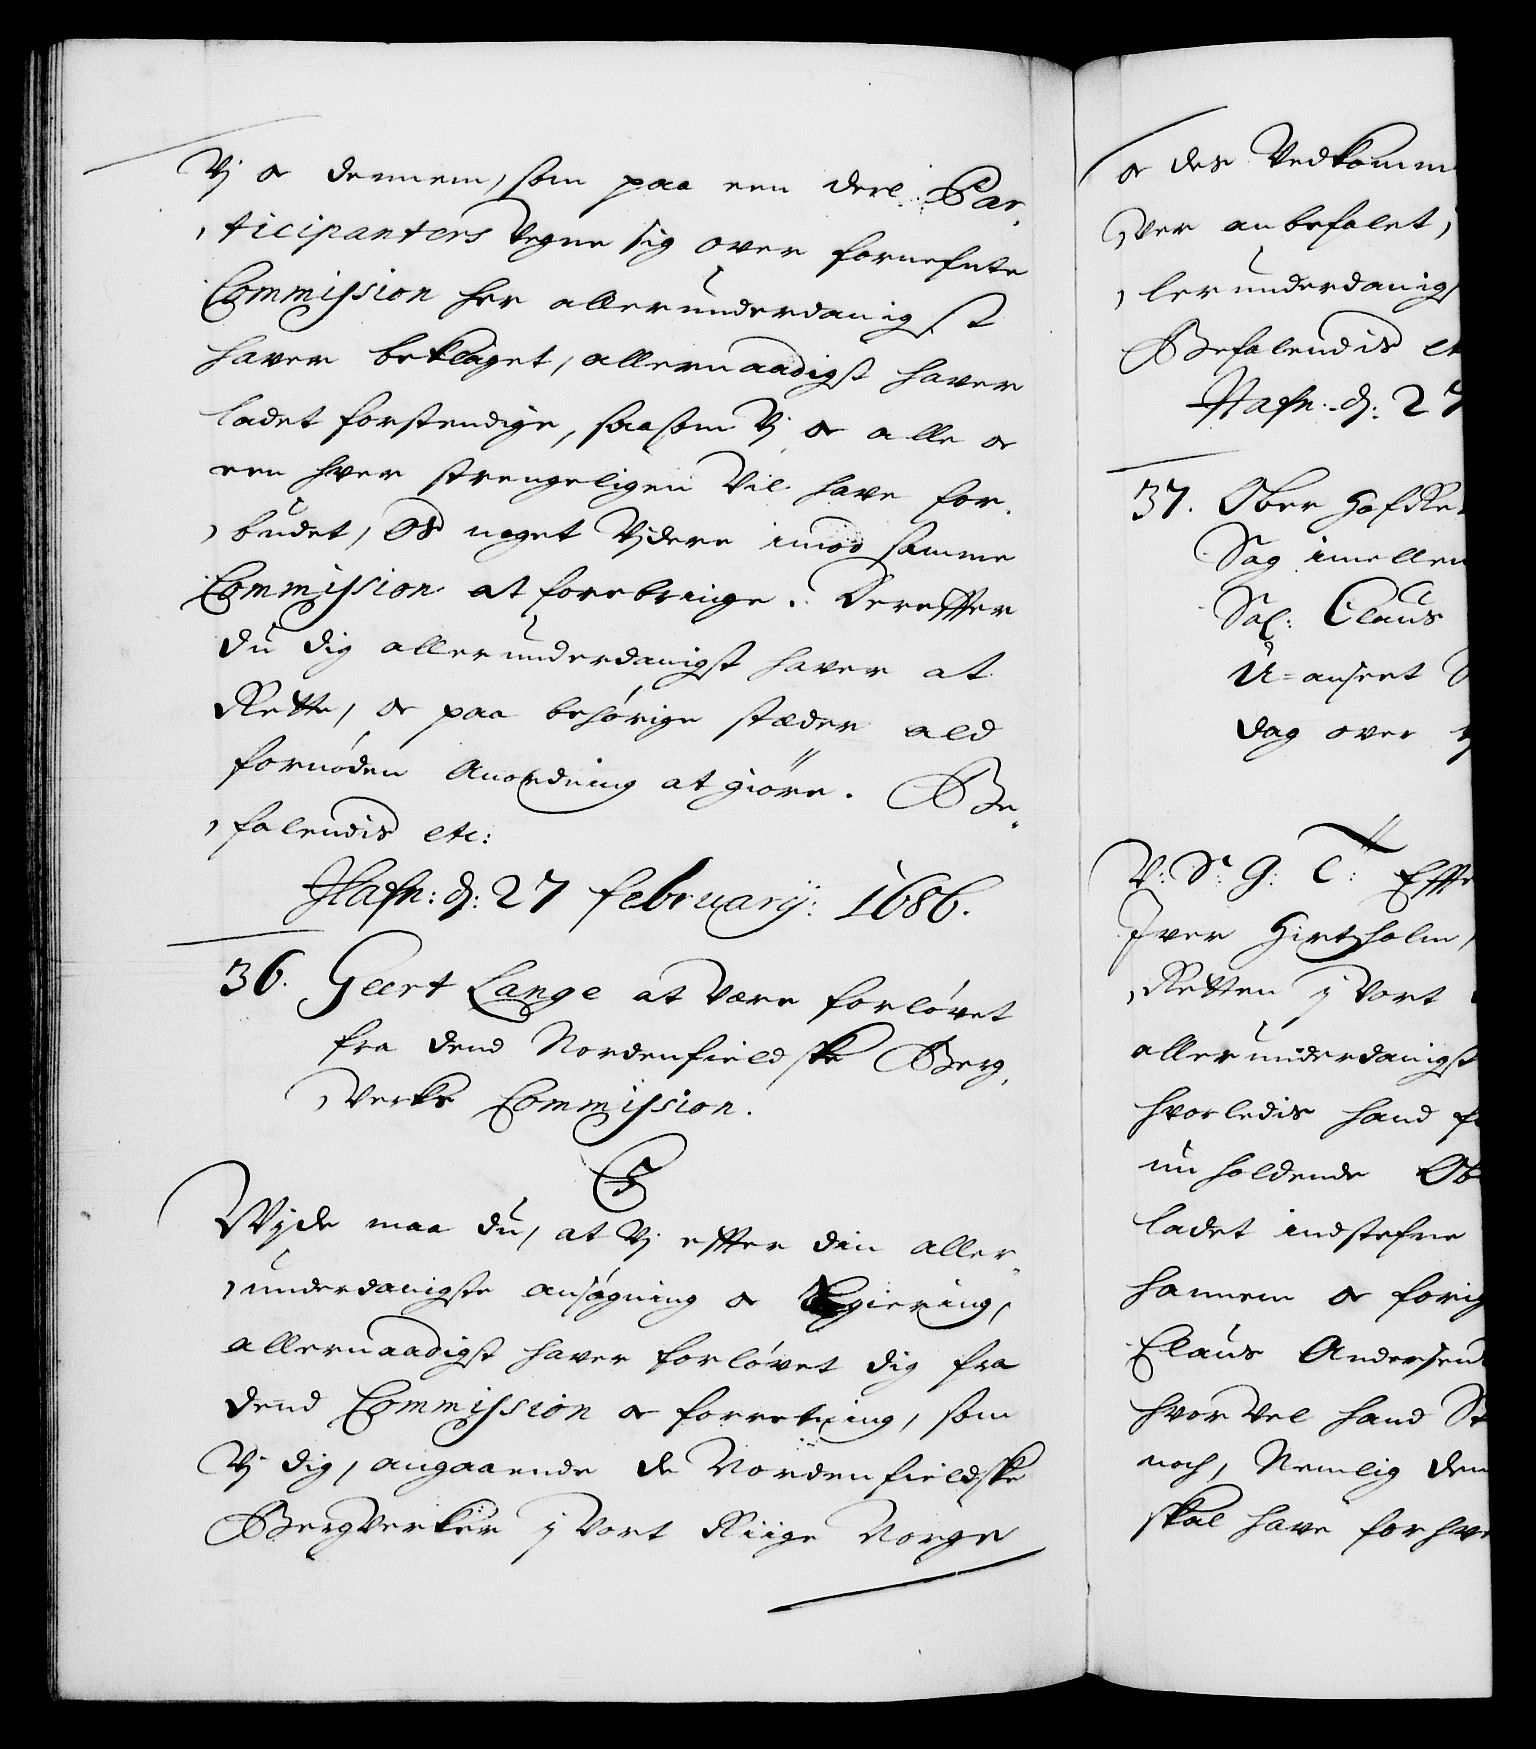 Vj oc dennem, som paa een deel Par-
ticipanters Vegne sig over forneffnte
Commission her allerunderdanigst
haver beklaget, allernaadigst haver
ladet forstendige, saasom Vj oc alle oc
een hver strengeligen Vil have for-
budet, Os noget Vjdere imod samme
Commission at forebringe. Dereffter
du dig allerunderdanigst haver at
Rette, oc paa behørige stæder ald
fornøden Anordning at giöre. Be-
falendis etc:
Hafn: d: 27 februarij: 1686.
36. Geert Lange at være forløvet
fra dend Nordenfieldske Berg-
Verks Commission.
C5
Wjde maa du, at Vj effter din aller-
underdanigste ansøgning oc begiering,
allernaadigst haver forløvet dig fra
dend Commission oc forretning, som
Vj dig, angaaende de Nordenfieldske
BergVerker j Vort Riige Norge
oc des Vedkomm
Ver anbefalet,
lerunderdanigs
Befalendis et
Hafn: d: 27
37. Ober HofRe
Sag imellem
Sal: Claus
U-anseet
dag over
V: S: G: T: Effte
Iver Hirtzholm,
Retten j Vort
allerunderdanigst
hvorledis hand f
nu holdende Ob
ladet indstefne
hannem oc forig
Claus Andersen
hvorvel hand St
noch, Nemlig den
skal have for hve